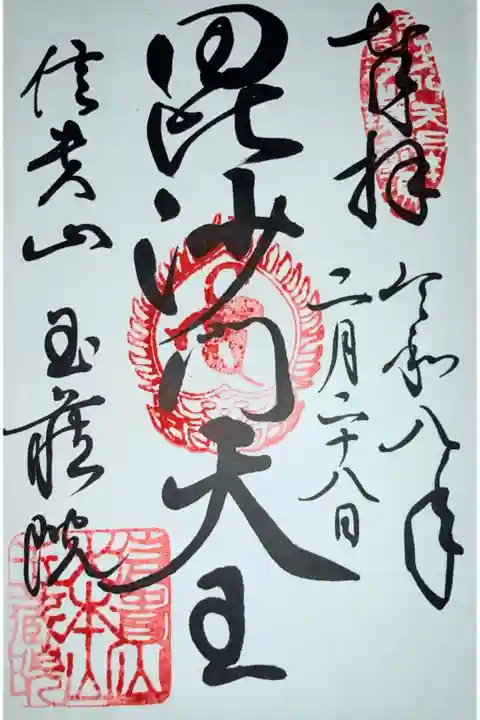 奉拝
令和八年
二月二十八日
毘沙門天王
信貴山 玉蔵院
信貴山
大本山
玉蔵院